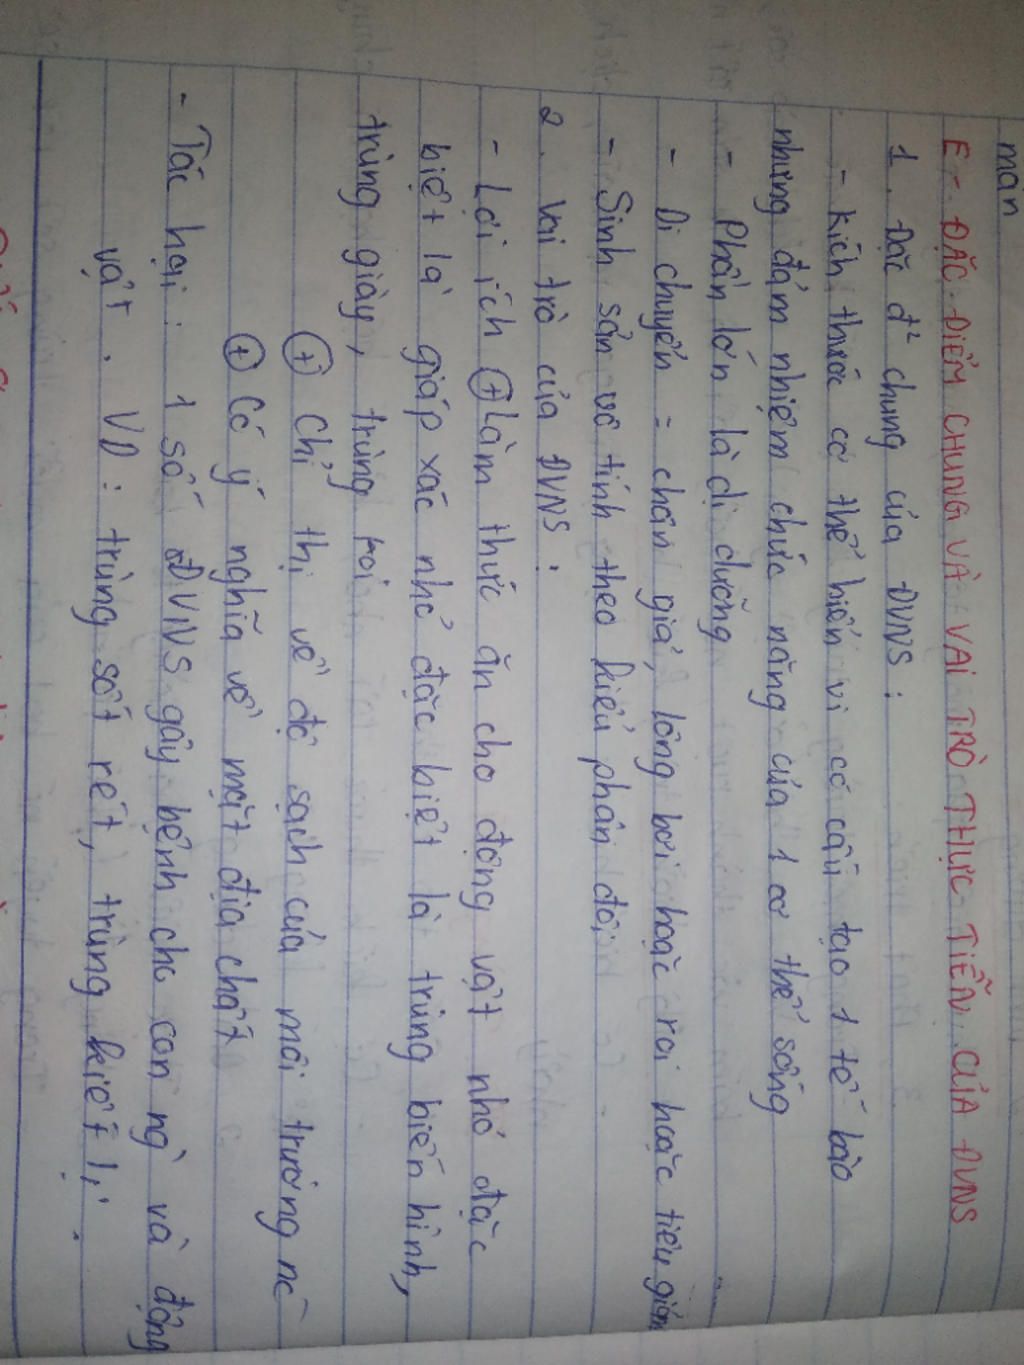 man
E - ĐẶC ĐIỂM CHUNG VÀ VAI TRÒ THỰC TIỄN CỦA ĐVNS
1. Đặc đ² chung của ĐVNS :
- Kích thước cơ thể hiển vi có cấu tạo 1 tế bào
nhưng đảm nhiệm chức năng của 1 cơ thể sống
- Phần lớn là dị dưỡng
- Di chuyển = chân giả, lông bơi hoặc roi hoặc tiêu giảm
- Sinh sản vô tính theo kiểu phân đôi
2. Vai trò của ĐVNS :
- Lợi ích ⊕ Làm thức ăn cho động vật nhỏ đặc
biệt là giáp xác nhỏ đặc biệt là trùng biến hình,
trùng giày, trùng roi
⊕ Chỉ thị về độ sạch của môi trường nc
⊕ Có ý nghĩa về mặt địa chất
- Tác hại : 1 số ĐVNS gây bệnh cho con ng` và động
vật . VD : trùng sốt rét, trùng kiết lị .